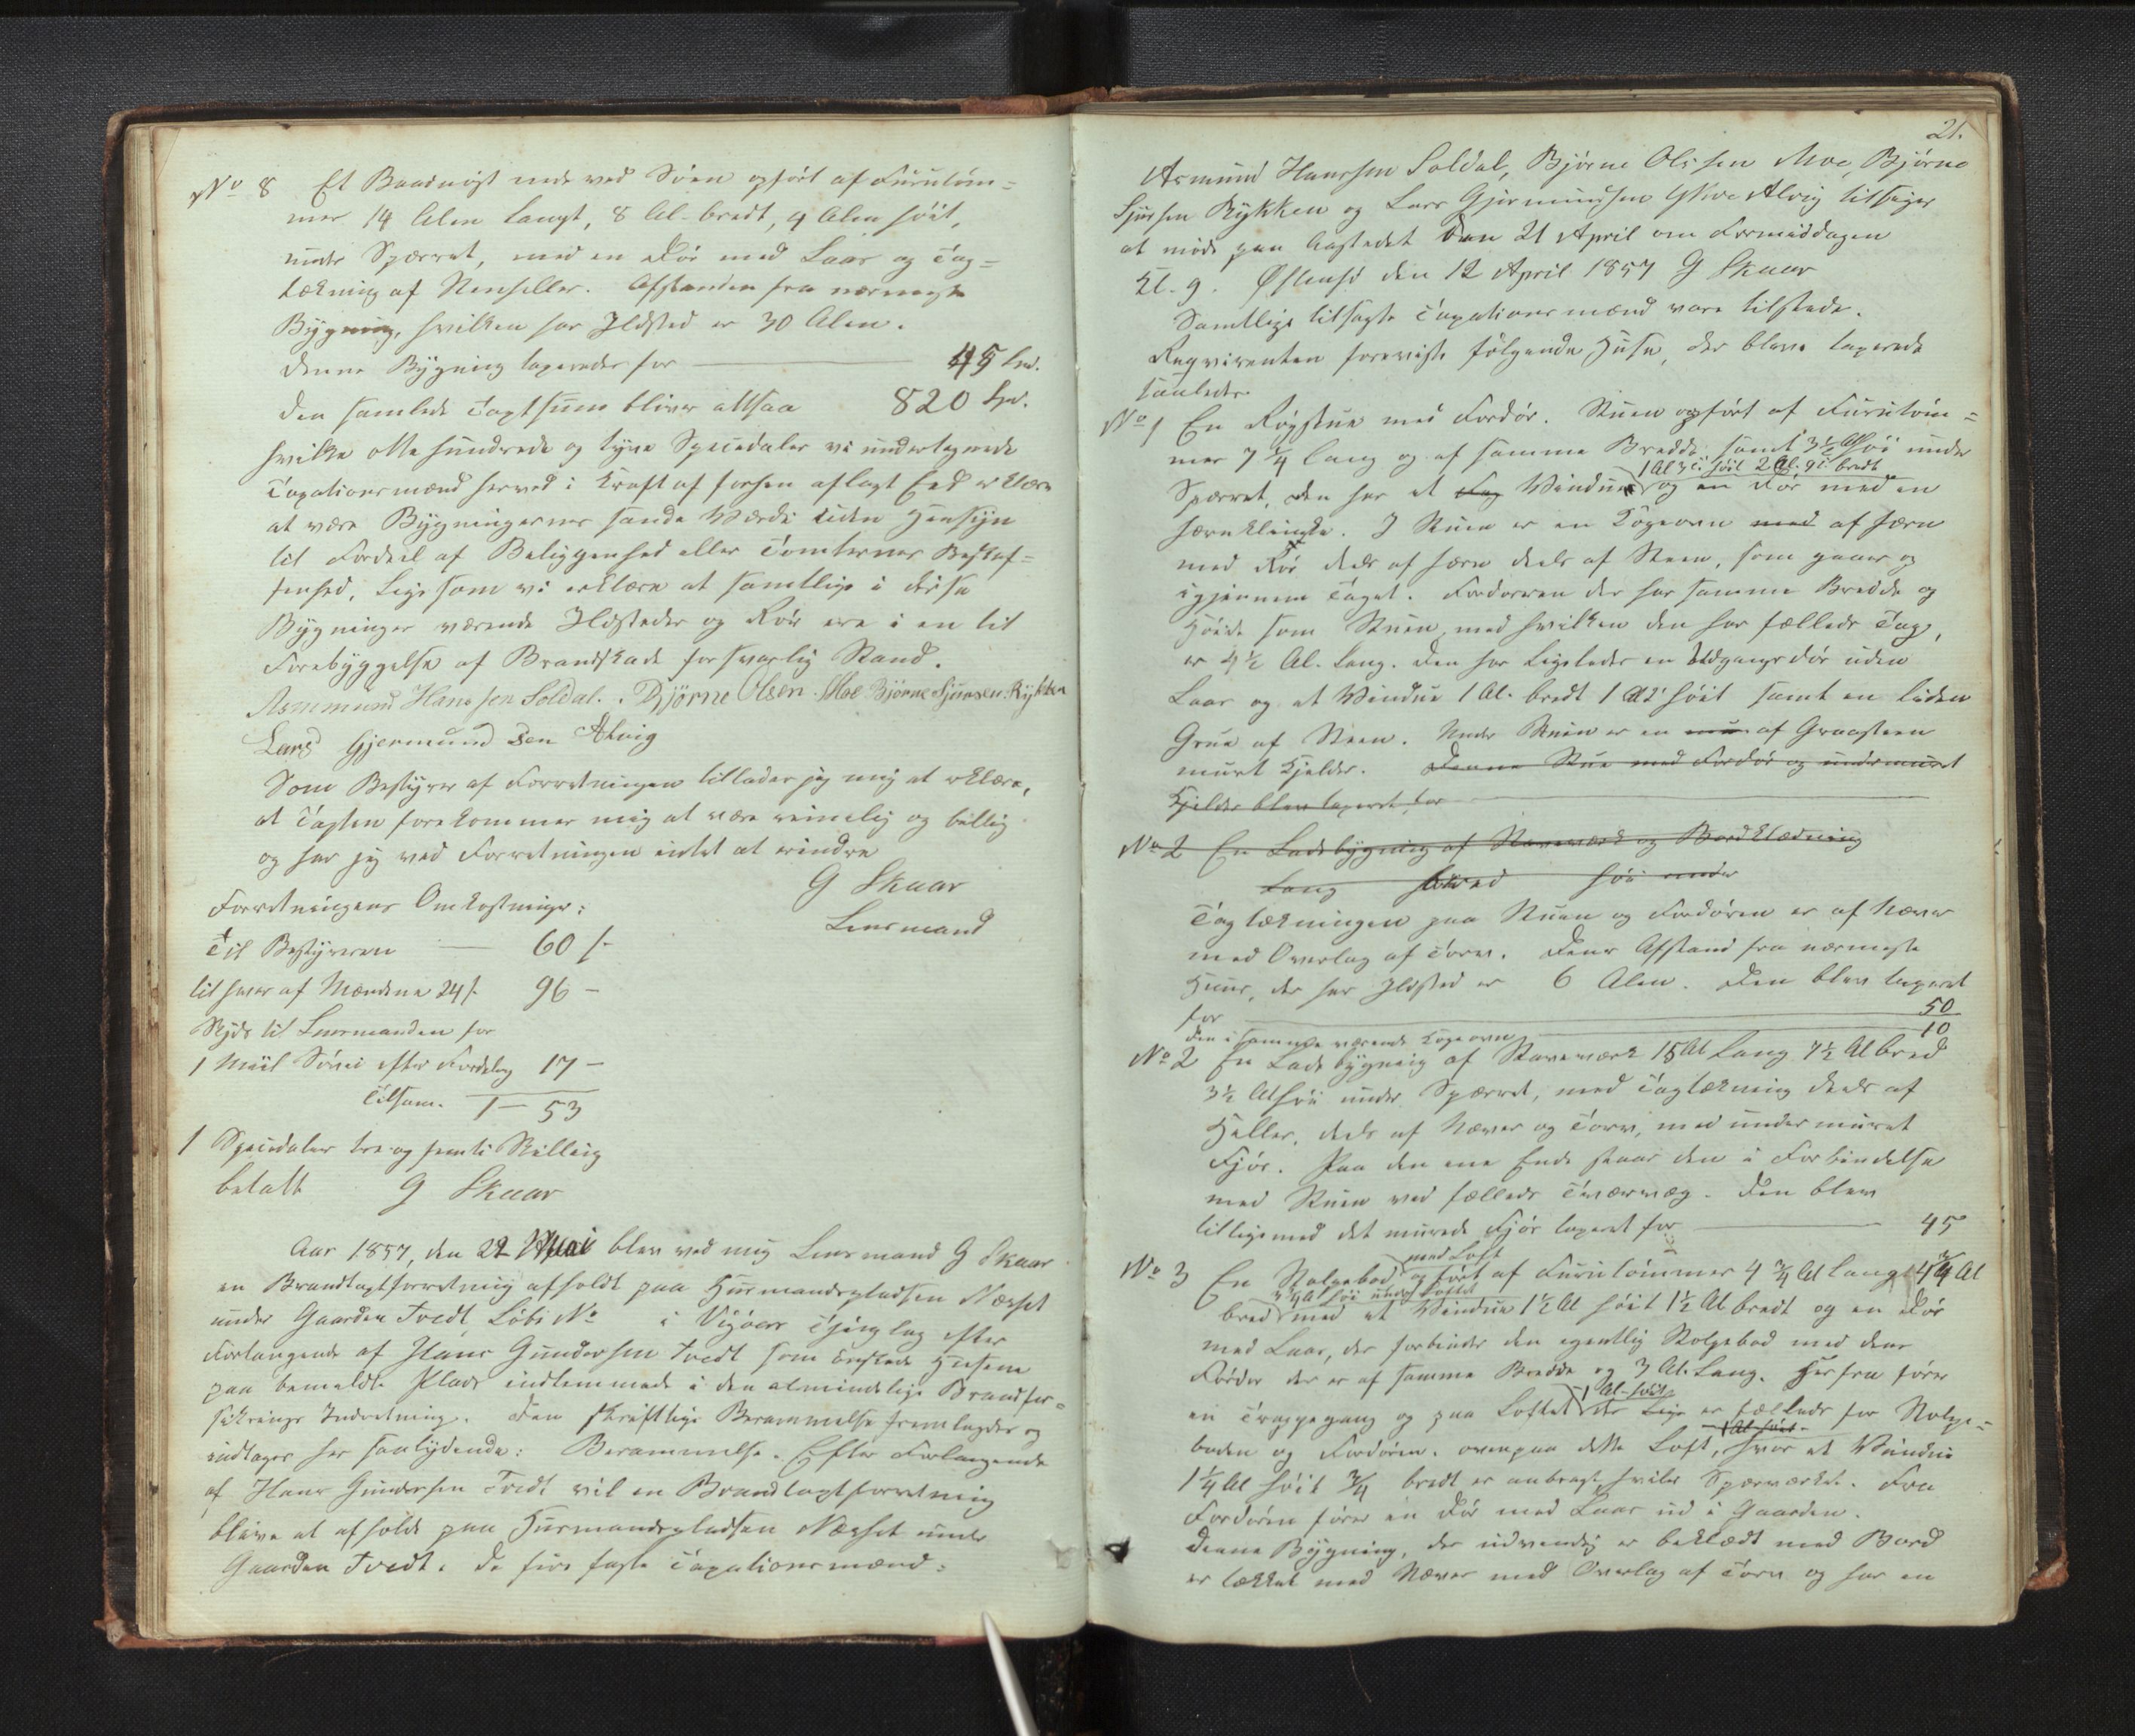 No 8 Et Baadnøst nede ved Søen opført af Furutøm=
mer 14 Alen langt, 8 Al. bredt, 4 Alen høit,
under Spærret, med en Dør med Laas og Tag=
tækning af Steenheller. Afstanden fra nærmeste
Bygning, hvilken har Ildsted er 30 Alen.
denne Bygning taxeredes for 45 Spd.
den samlede Taxtsum bliver altsaa 820 Spd.
hvilke otte hundrede og tyve Speciedaler vi undertegnede
Taxationsmænd herved i Kraft af forhen aflagt Eed erklære
at være Bygningernes sande Værdi uden Hensyn
til Fordeel af Beliggenhed eller Tomternes Beskaf=
fenhed, Ligesom vi erklære at samtlige i disse
Bygninger værende Ildsteder og Rør ere i en til
Forebyggelse af Brandskade forsvarlig Stand.
Asmmund Hanssen Soldal. Bjørne Olsen Moe Bjørne Sjursen Rykken
Lars Gjermundsen Alvig
Som Bestyrer af Forretningen tillader jeg mig at erklære,
at Taxten forekommer mig at være rimelig og billig
og har jeg ved Forretningen intet at erindre
G Skaar
Lensmand
Forretningens Omkostninger:
Til Bestyreren 60 s
til hver af Mændene 24 s 96 -
Skyds til Lensmanden for
1 Miil Søvei efter Fordeling 17 -
Tilsam. 1 - 53
1 Speciedaler tre og femti Skilling
betalt G Skaar
Aar 1857, den 22 Mai blev ved mig Lensmand G Skaar
en Brandtaxtforretning afholdt paa Huusmandspladsen Næshet
under Gaarden Tvedt, Løbe No i Vigøers Thinglag efter
Forlangende af Hans Gundersen Tvedt som ønskede Husene
paa bemeldte Plads indlemmede i den almindelige Brandfor=
sikrings Indretning. Den skriftlige Berammelse fremlagdes og
indtages her saalydende: Berammelse. Efter Forlangende
af Hans Gundersen Tvedt vil en Brandtaxtforretning
blive at afholde paa Huusmandspladsen Næshet under
Gaarden Tvedt. De fire faste Taxationsmænd:
21.
Asmund Hanssen Soldal, Bjørne Olssen Moe, Bjørne
Sjursen Rykken og Lars Gjermundsen Alvig tilsiges
at møde paa Aastedet den 21 April om Formiddagen
Kl. 9. Østensø den 12 April 1857 G Skaar
Samtlige tilsagte Taxationsmænd vare tilstede.
Reqvirenten foreviste følgende Huse, der bleve taxerede
saaledes.
No 1 En Røgstue med Fordør. Stuen opført af Furutøm=
mer 7 1/4 lang og af samme Bredde samt 3 1/2 Al høi under
1 Al 3 t. høit 2 Al. 9 t. bredt
Spærret, den har et Fag Vindue og en Dør med en
Jernklinke. I Stuen er en Kogeovn med af Jern
med Rør deels af Jern deels af Steen, som gaaer op
igjennem Taget. Fordøren der har samme Bredde og
Høide som Stuen, med hvilken den har fælleds Tag,
er 4 1/2 Al. lang. Den har ligeledes en Udgangsdør uden
Laas og et Vindue 1 Al. bredt 1 Al høit samt en liden
Grue af Steen. Under Stuen er en af Graasteen
muret Kjelder. Denne Stue med Fordør og undermuret
Kjelder blev taxeret for
No 2 En Ladebygning af Stavværk og Bordklædning
lang bred høi under
Tagtækningen paa Stuen og Fordøren er af Næver
med Overlag af Torv. Dens Afstand fra nærmeste
Huus, der har Ildsted er 6 Alen. Den blev taxeret
for 50
den i samme værende Kogeovn 10
No 2 En Ladebygning af Stavværk 15 Al lang 7 1/2 Al bred
3 1/2 Al høi under Spærret, med Tagtækning deels af
Heller, deels af Næver og Torv, med undermuret
Fjøs. Paa den ene Ende staar den i Forbindelse
med Stuen ved fælleds Tværvæg. Den blev
tilligemed det murede Fjøs taxeret for 45
med Loft
No 3 En Stolpebod opført af Furutømmer 4 3/4 Al lang 4 3/4 Al
3 1/4 Al høi under Loftet
bred med et Vindue 1 1/2 Al høit 1 1/2 Al bredt og en Dør
med Laas, der forbinder den egentlig Stolpebod med dens
Fordør der er af samme Bredde og 3 Al. lang. Herfra fører
1 Al. høit
en Trappegang op paa Loftet der er fælleds for Stolpe=
1 Al høit
boden og Fordøren. ovenpaa dette Loft, hvor et Vindue
1 1/4 Al høit 3/4 bredt er anbragt, hviler Spærværket. Fra
Fordøren fører en Dør med Laas ud i Gaarden.
Denne Bygning, der udvendig er beklædt med Bord
er tækket med Næver med Overlag af Torv og har en